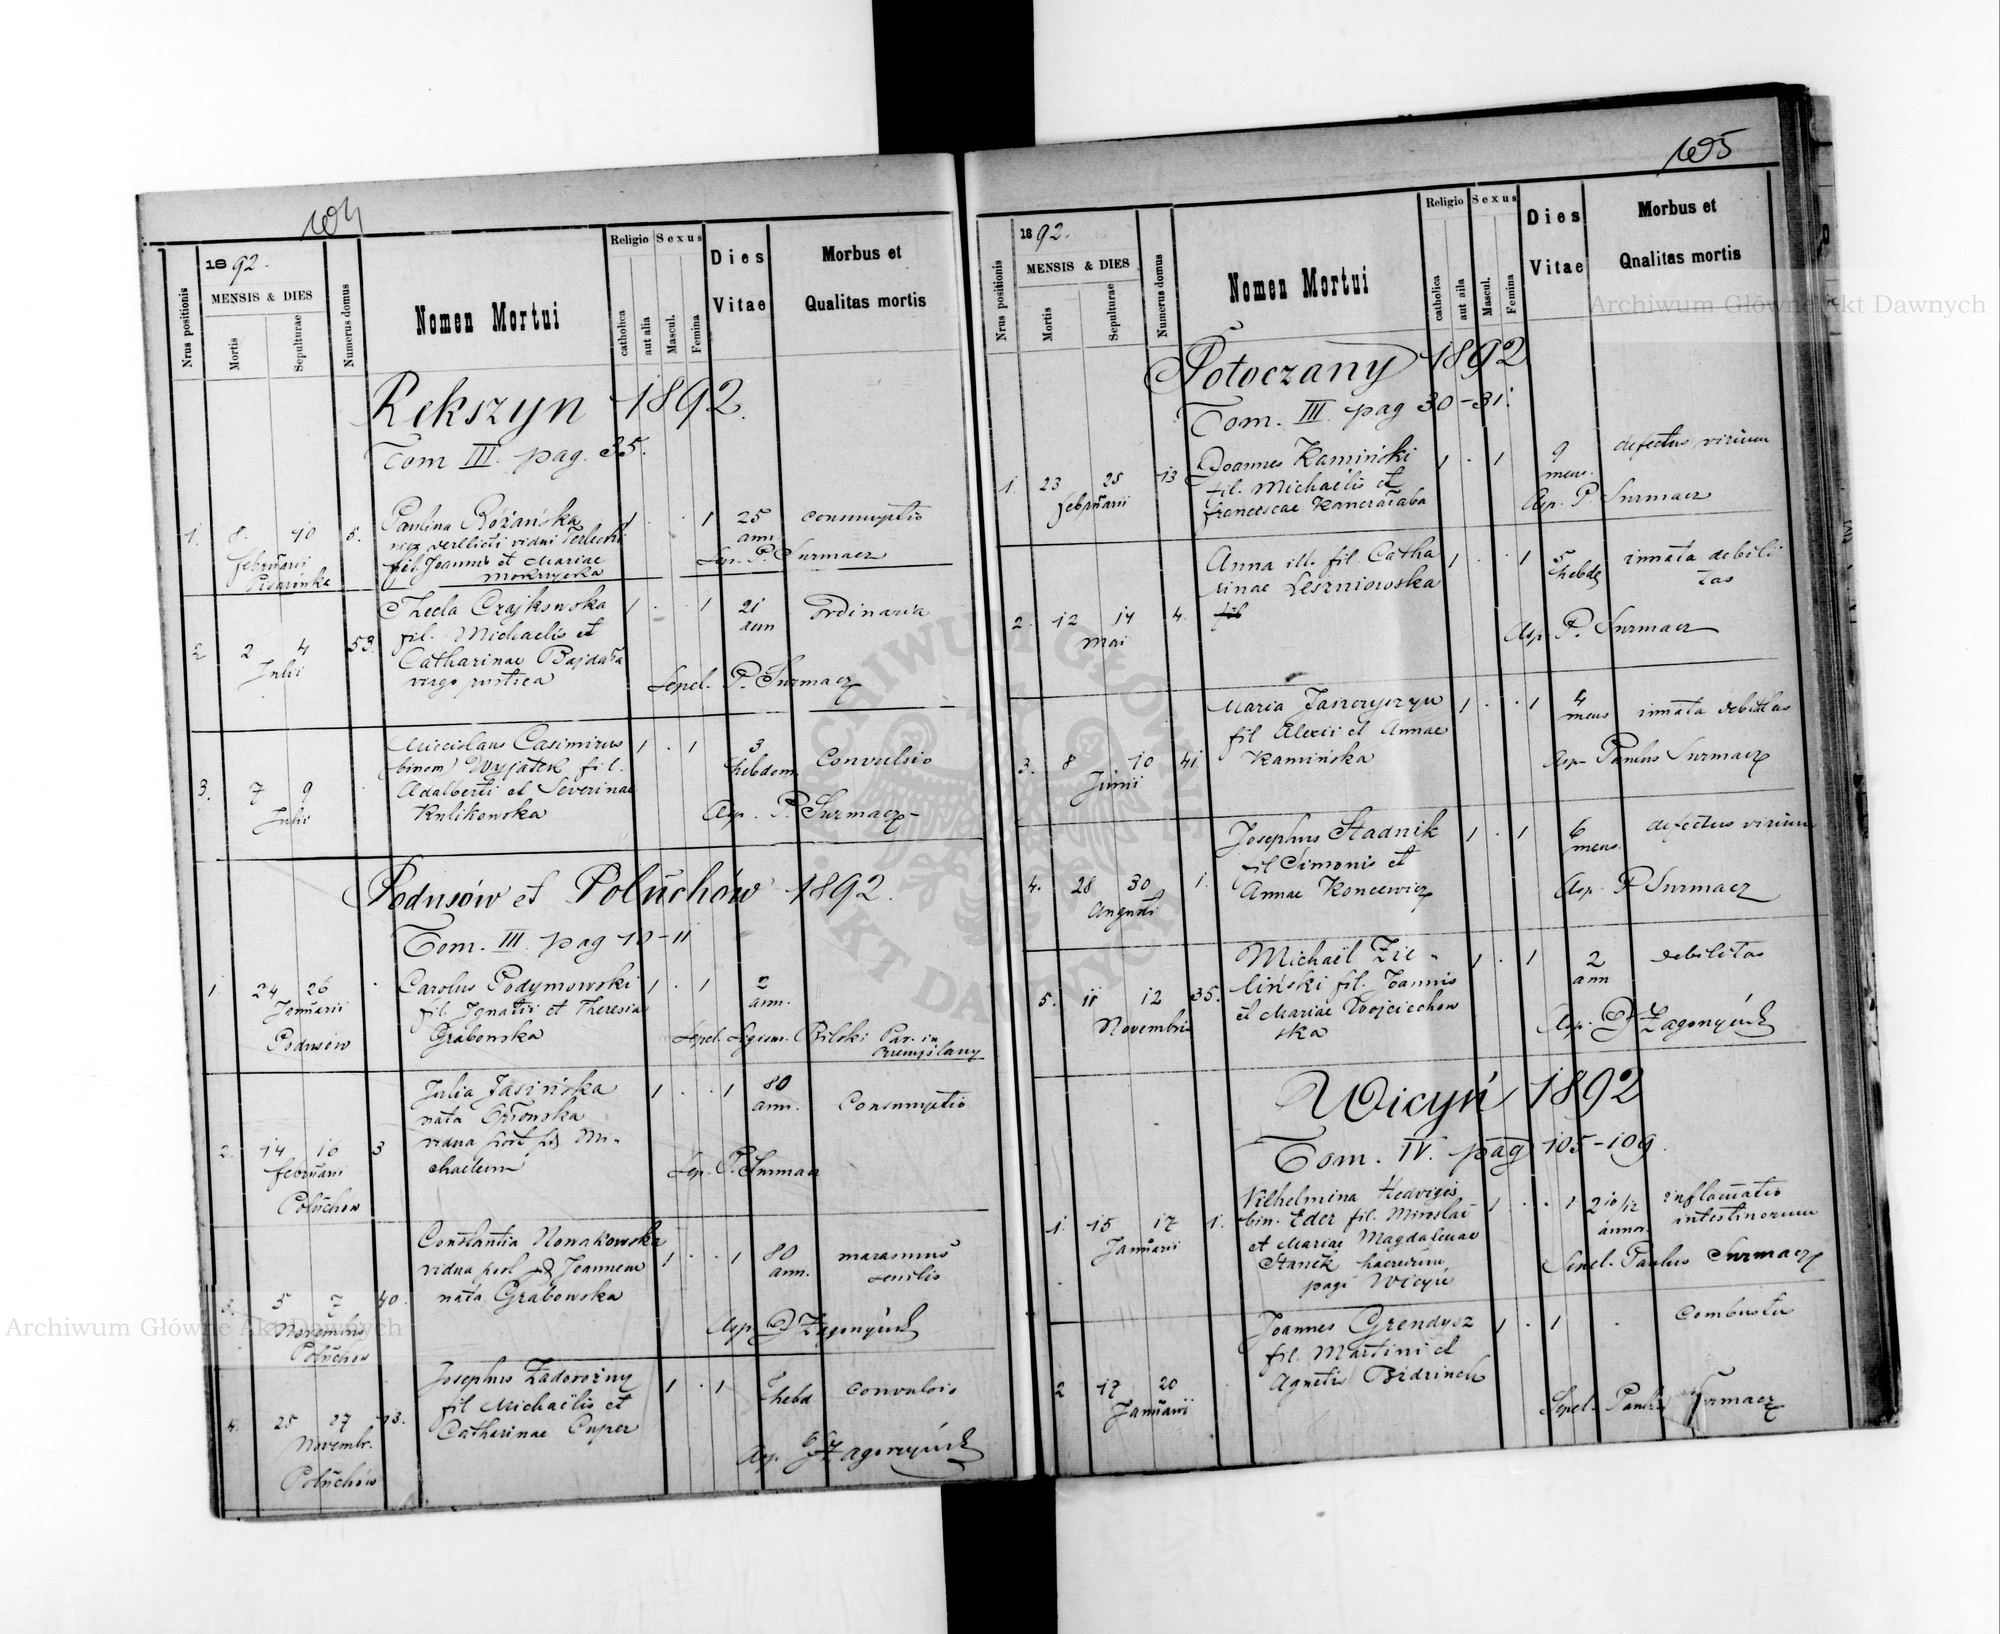 104
1892.
Nrus positionis
MENSIS & DIES
Mortis
Sepulturae
Numerus domus
Nomen Mortui
Religio
catholica
aut alia
Sexus
Mascul.
Femina
Dies
Vitae
Morbus et
Qualitas mortis
Rekszyn 1892.
Tom III. pag. 35.
1. 8. 10 5. Paulina Rożańska 1 . . 1 25 consumptio
februarii ann
Pisarinka
fil. Joannis et Mariae Sep. P. Surmacz
Mokrzycka
2 2 4 53. Thecla Czajkowska 1 . . 1 21 ordinaria
Julii fil. Michaelis et ann
Catharinae Bajdała
virgo rustica Sepel. P. Surmacz
3. 7 9 . Miecislaus Casimirus 1 . 1 3 Convulsio
Julii (binom) Wyjatek fil. hebdom.
Adalberti et Severinae
Kulikowska Asp. P. Surmacz
Podusów et Poluchów 1892.
Tom. III pag 10-11
1. 24 26 . Carolus Podymowski 1 . 1 2
Januarii fil. Ignatii et Theresiae ann.
Podusów Grabowska Sepel. Sigism. Bilski Par. in
Przemyślany
2. 14 16 3 Julia Jasińska 1 . . 1 80 Consumptio
februarii nata ann.
Poluchow vidua post Mi-
chaelem Sep. P. Surmacz
3. 5 7 40. Constantia Nowakowska 1 . . 1 80 marasmus
Novembris vidua post Joannem ann. senilis
Poluchow nata Grabowska
Asp.
4. 25 27 13. Josephus Zadorożny 1 . 1 hebd convulsio
Novembr. fil Michaëlis et
Poluchów Catharinae Cuper
Asp.
105
1892.
Nrus positionis
MENSIS & DIES
Mortis
Sepulturae
Numerus domus
Nomen Mortui
Religio
catholica
aut aila
Sexus
Mascul.
Femina
Dies
Vitae
Morbus et
Qnalitas mortis
Potoczany 1892
Tom. III pag 30-31.
1. 23 25 13 Joannes Kamiński 1 . 1 9 defectus virium
februarii fil. Michaëlis et mens.
franciscae Asp. P Surmacz
2. 12 14 4. Anna ill. fil. Catha 1 . . 1 5 innata debili
Mai rinae Leszniowska hebd tas
fil
Asp P. Surmacz
3. 8 10 41. Maria 1 . . 1 4 innata debilitas
Junii fil Alexii et Annae mens
Kamińska Asp- Paulus Surmacz
4. 28 30 1. Josephus Stadnik 1 . 1 6 defectus virium
Augusti fil Simonis et mens.
Annae Koncewicz Asp. P Surmacz
5. 11 12 35. Michaël Zie- 1 . 1 2 debilitas
Novembris liński fil. Joannis ann
et Mariae Wojciechow
ska Asp.
Wicyń 1892
Tom. IV. pag 105-109.
1. 15 17 1. Vilhelmina Hedvigis 1 . . 1 2 10/12 inflamatio
Januarii bin. Eder fil. Miroslai annor intestinorum
et Mariae Magdalenae
Stanek haeredum, Sepel. Paulus Surmacz
pagi Wicyn
2 17 20 . Joannes Grendysz 1 . 1 . Combustu
Januarii fil. Martini et
Agnetis
Sepel. Paulus Surmacz
Archiwum Główne Akt Dawnych
Archiwum Główne Akt Dawnych
ARCHIWUM GŁÓWNE AKT DAWNYCH